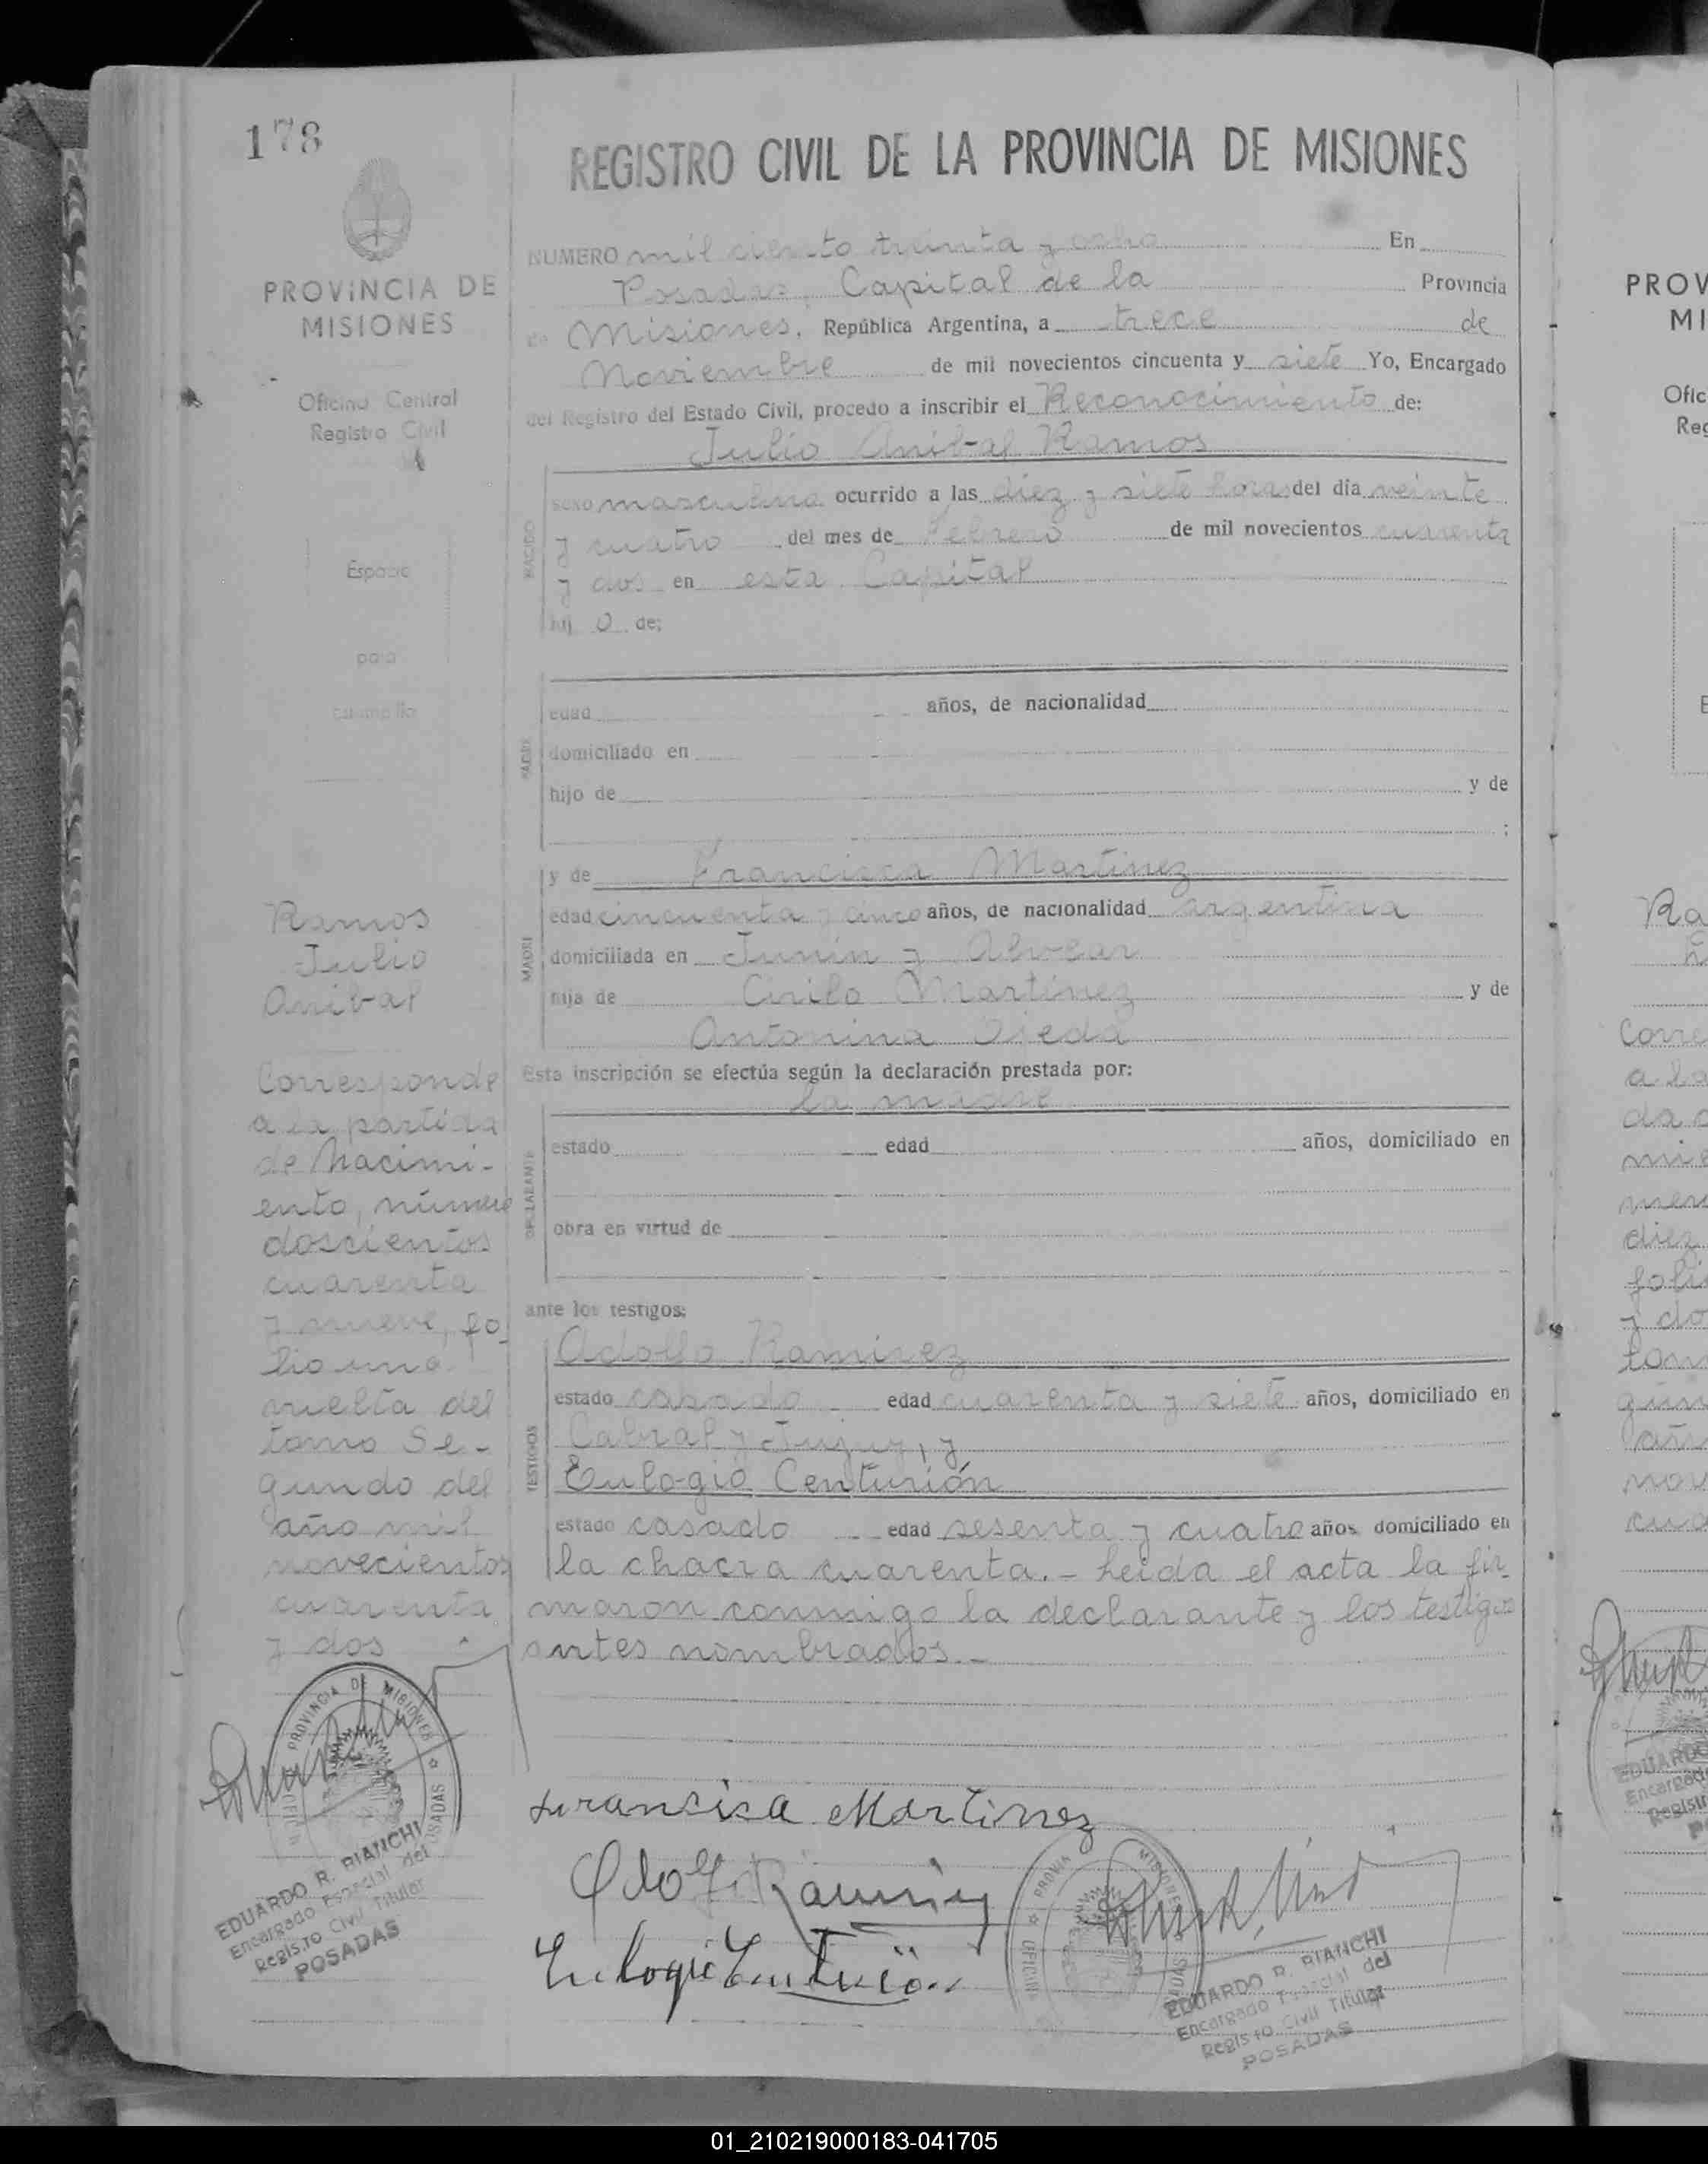 178
PROVINCIA DE
MISIONES
Oficina Central
Registro Civil
Espacio
para
estampilla
Ramos
Julio
Anibal
Corresponde
a la partida
de Nacimi-
ento, número
doscientos
cuarenta
y nueve, fo-
lio una
vuelta del
tomo Se-
gundo del
año mil
novecientos
cuarenta
y dos
PROVINCIA DE MISIONES
POSADAS
EDUARDO R. BIANCHI
Encargado Especial del
Regis.ro Civil Titular
POSADAS
REGISTRO CIVIL DE LA PROVINCIA DE MISIONES
NUMERO mil ciento treinta y ocho En
Posadas, Capital de la Provincia
de Misiones, República Argentina, a trece de
Noviembre de mil novecientos cincuenta y siete Yo, Encargado
del Registro del Estado Civil, procedo a inscribir el Reconocimiento de:
Julio Anibal Ramos
NACIDO
sexo masculino ocurrido a las diez y siete horas del día veinte
y cuatro del mes de Febrero de mil novecientos cuarenta
y dos en esta Capital
hij o de;
PADRE
edad años, de nacionalidad
domiciliado en
hijo de y de
;
y de Francisca Martinez
MADRE
edad cincuenta y cinco años, de nacionalidad argentina
domiciliada en Junín y Alvear
hija de Cirilo Martinez y de
Antonina Ojeda
Esta inscripción se efectúa según la declaración prestada por:
la madre
DECLARANTE
estado edad años, domiciliado en
obra en virtud de
ante los testigos:
TESTIGOS
Adolfo Ramirez
estado casado edad cuarenta y siete años, domiciliado en
Cabral y Jujuy, y
Eulogio Centurión
estado casado edad sesenta y cuatro años domiciliado en
la chacra cuarenta.- Leida el acta la fir-
maron conmigo la declarante y los testigos
antes nombrados.-
Fransisca Martinez
Adolfo Ramirez
Eulogio Centurión
EDUARDO R. BIANCHI
Encargado Especial del
Regis.ro Civil Titular
POSADAS
01_210219000183-041705